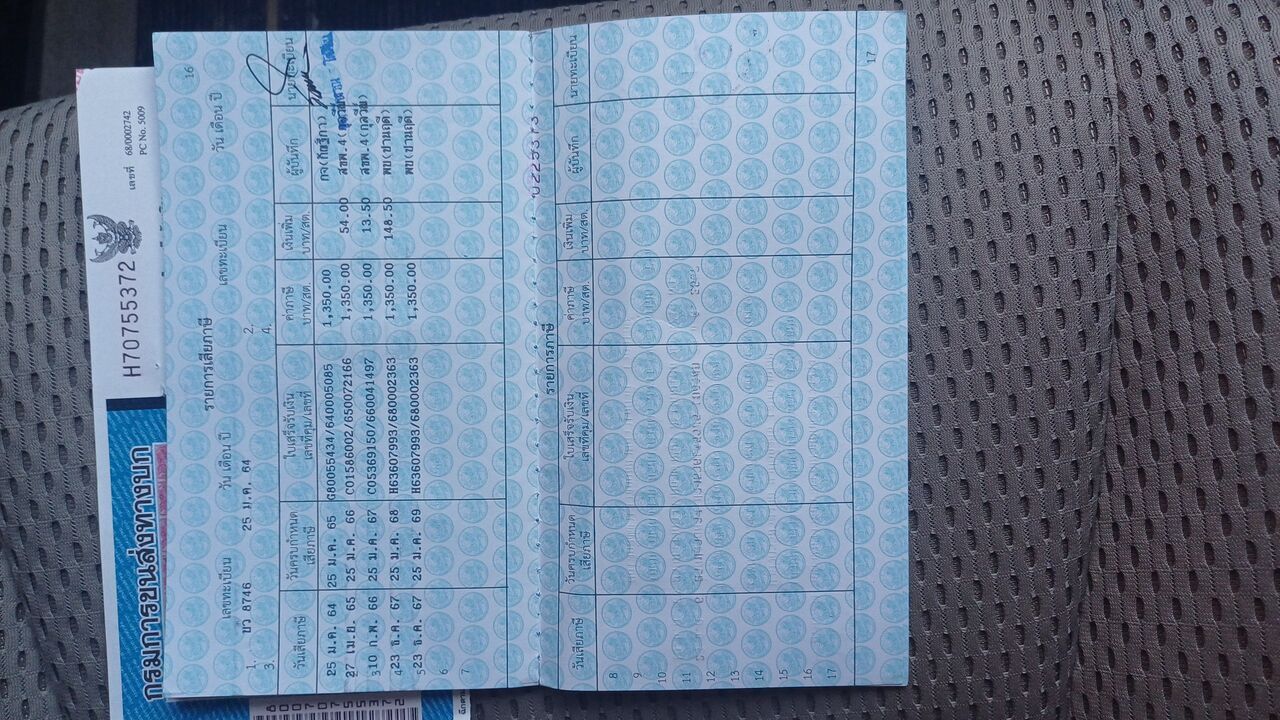 เลขที่ 68/0002742
PC No. 5009
H70755372
กรมการขนส่งทางบก
16
รายการเสียภาษี
เลขทะเบียน วัน เดือน ปี เลขทะเบียน วัน เดือน ปี
1. ขว 8746 25 ม.ค. 64 2.
3. 4.
วันเสียภาษี วันครบกำหนดเสียภาษี ใบเสร็จรับเงิน เลขที่คุม/เลขที่ ค่าภาษี บาท/สต. เงินเพิ่ม บาท/สต. ผู้บันทึก นายทะเบียน
25 ม.ค. 64 25 ม.ค. 65 G80055434/640005085 1,350.00
27 เม.ย. 65 25 ม.ค. 66 C01586002/650072166 1,350.00 54.00 สขพ.4
310 ก.พ. 66 25 ม.ค. 67 C05369150/660041497 1,350.00 13.50 สขพ.4(กุลวีณ์)
423 ธ.ค. 67 25 ม.ค. 68 H63607993/680002363 1,350.00 148.50 พข(ชานฤดี)
523 ธ.ค. 67 25 ม.ค. 69 H63607993/680002363 1,350.00 พข(ชานฤดี)
6
7
รายการภาษี
วันเสียภาษี วันครบกำหนดเสียภาษี ใบเสร็จรับเงิน เลขที่คุม/เลขที่ ค่าภาษี บาท/สต. เงินเพิ่ม บาท/สต. ผู้บันทึก นายทะเบียน
8
9
10
11
12
13
14
15
16
17
17